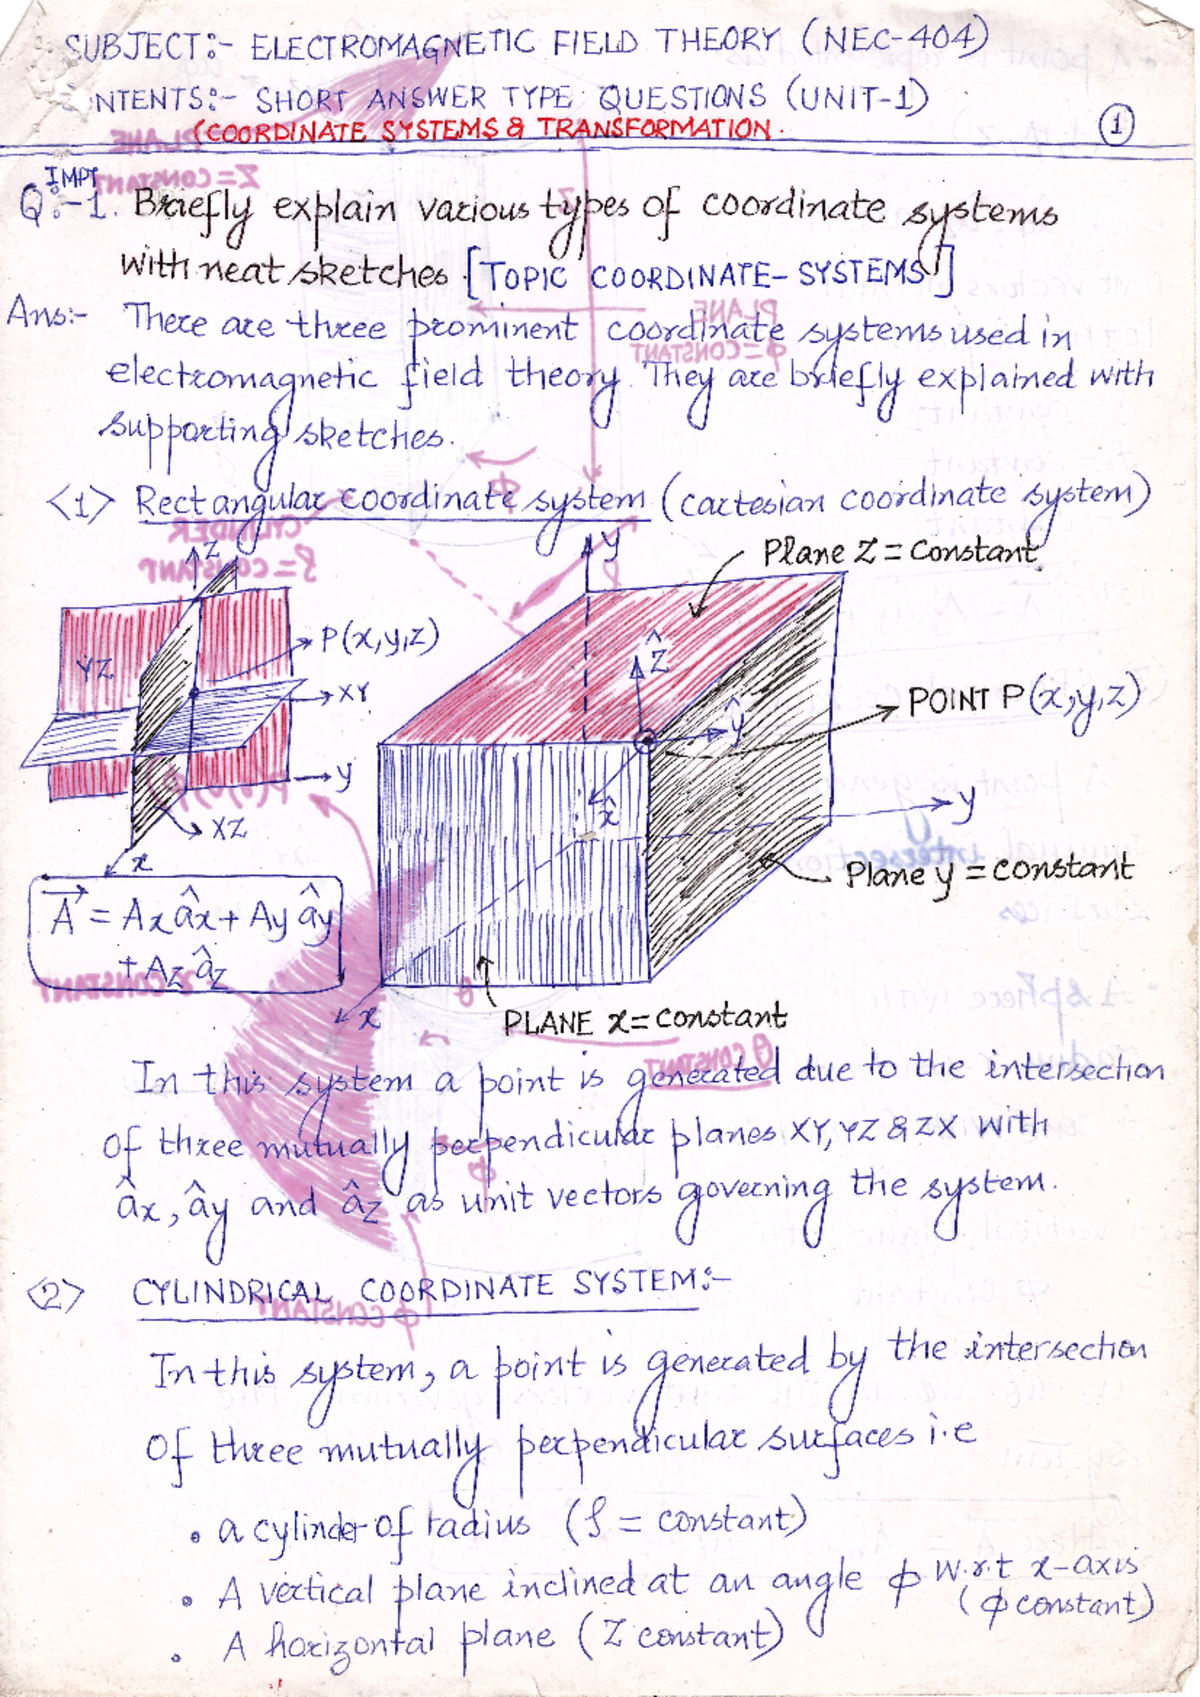 SUBJECT:- ELECTROMAGNETIC FIELD THEORY (NEC-404)
NTENTS:- SHORT ANSWER TYPE QUESTIONS (UNIT-1)
(COORDINATE SYSTEMS & TRANSFORMATION.
1
IMPT
Q:-1. Briefly explain various types of coordinate systems
with neat sketches [TOPIC COORDINATE-SYSTEMS]
Ans:- There are three prominent coordinate systems used in
electromagnetic field theory. They are briefly explained with
supporting sketches.
<1> Rectangular coordinate system (cartesian coordinate system)
Z
YZ
P(x,y,z)
XY
y
XZ
x
y
Plane Z = Constant
ẑ
ŷ
x̂
POINT P(x,y,z)
y
Plane y = constant
x
PLANE x = constant
A⃗ = Ax âx + Ay ây
+ Az âz
In this system a point is generated due to the intersection
of three mutually perpendicular planes XY, YZ & ZX with
âx, ây and âz as unit vectors governing the system.
<2> CYLINDRICAL COORDINATE SYSTEM:-
In this system, a point is generated by the intersection
of three mutually perpendicular surfaces i.e
• a cylinder of radius (ρ = constant)
• A vertical plane inclined at an angle ϕ w.r.t x-axis
(ϕ constant)
• A horizontal plane (Z constant)